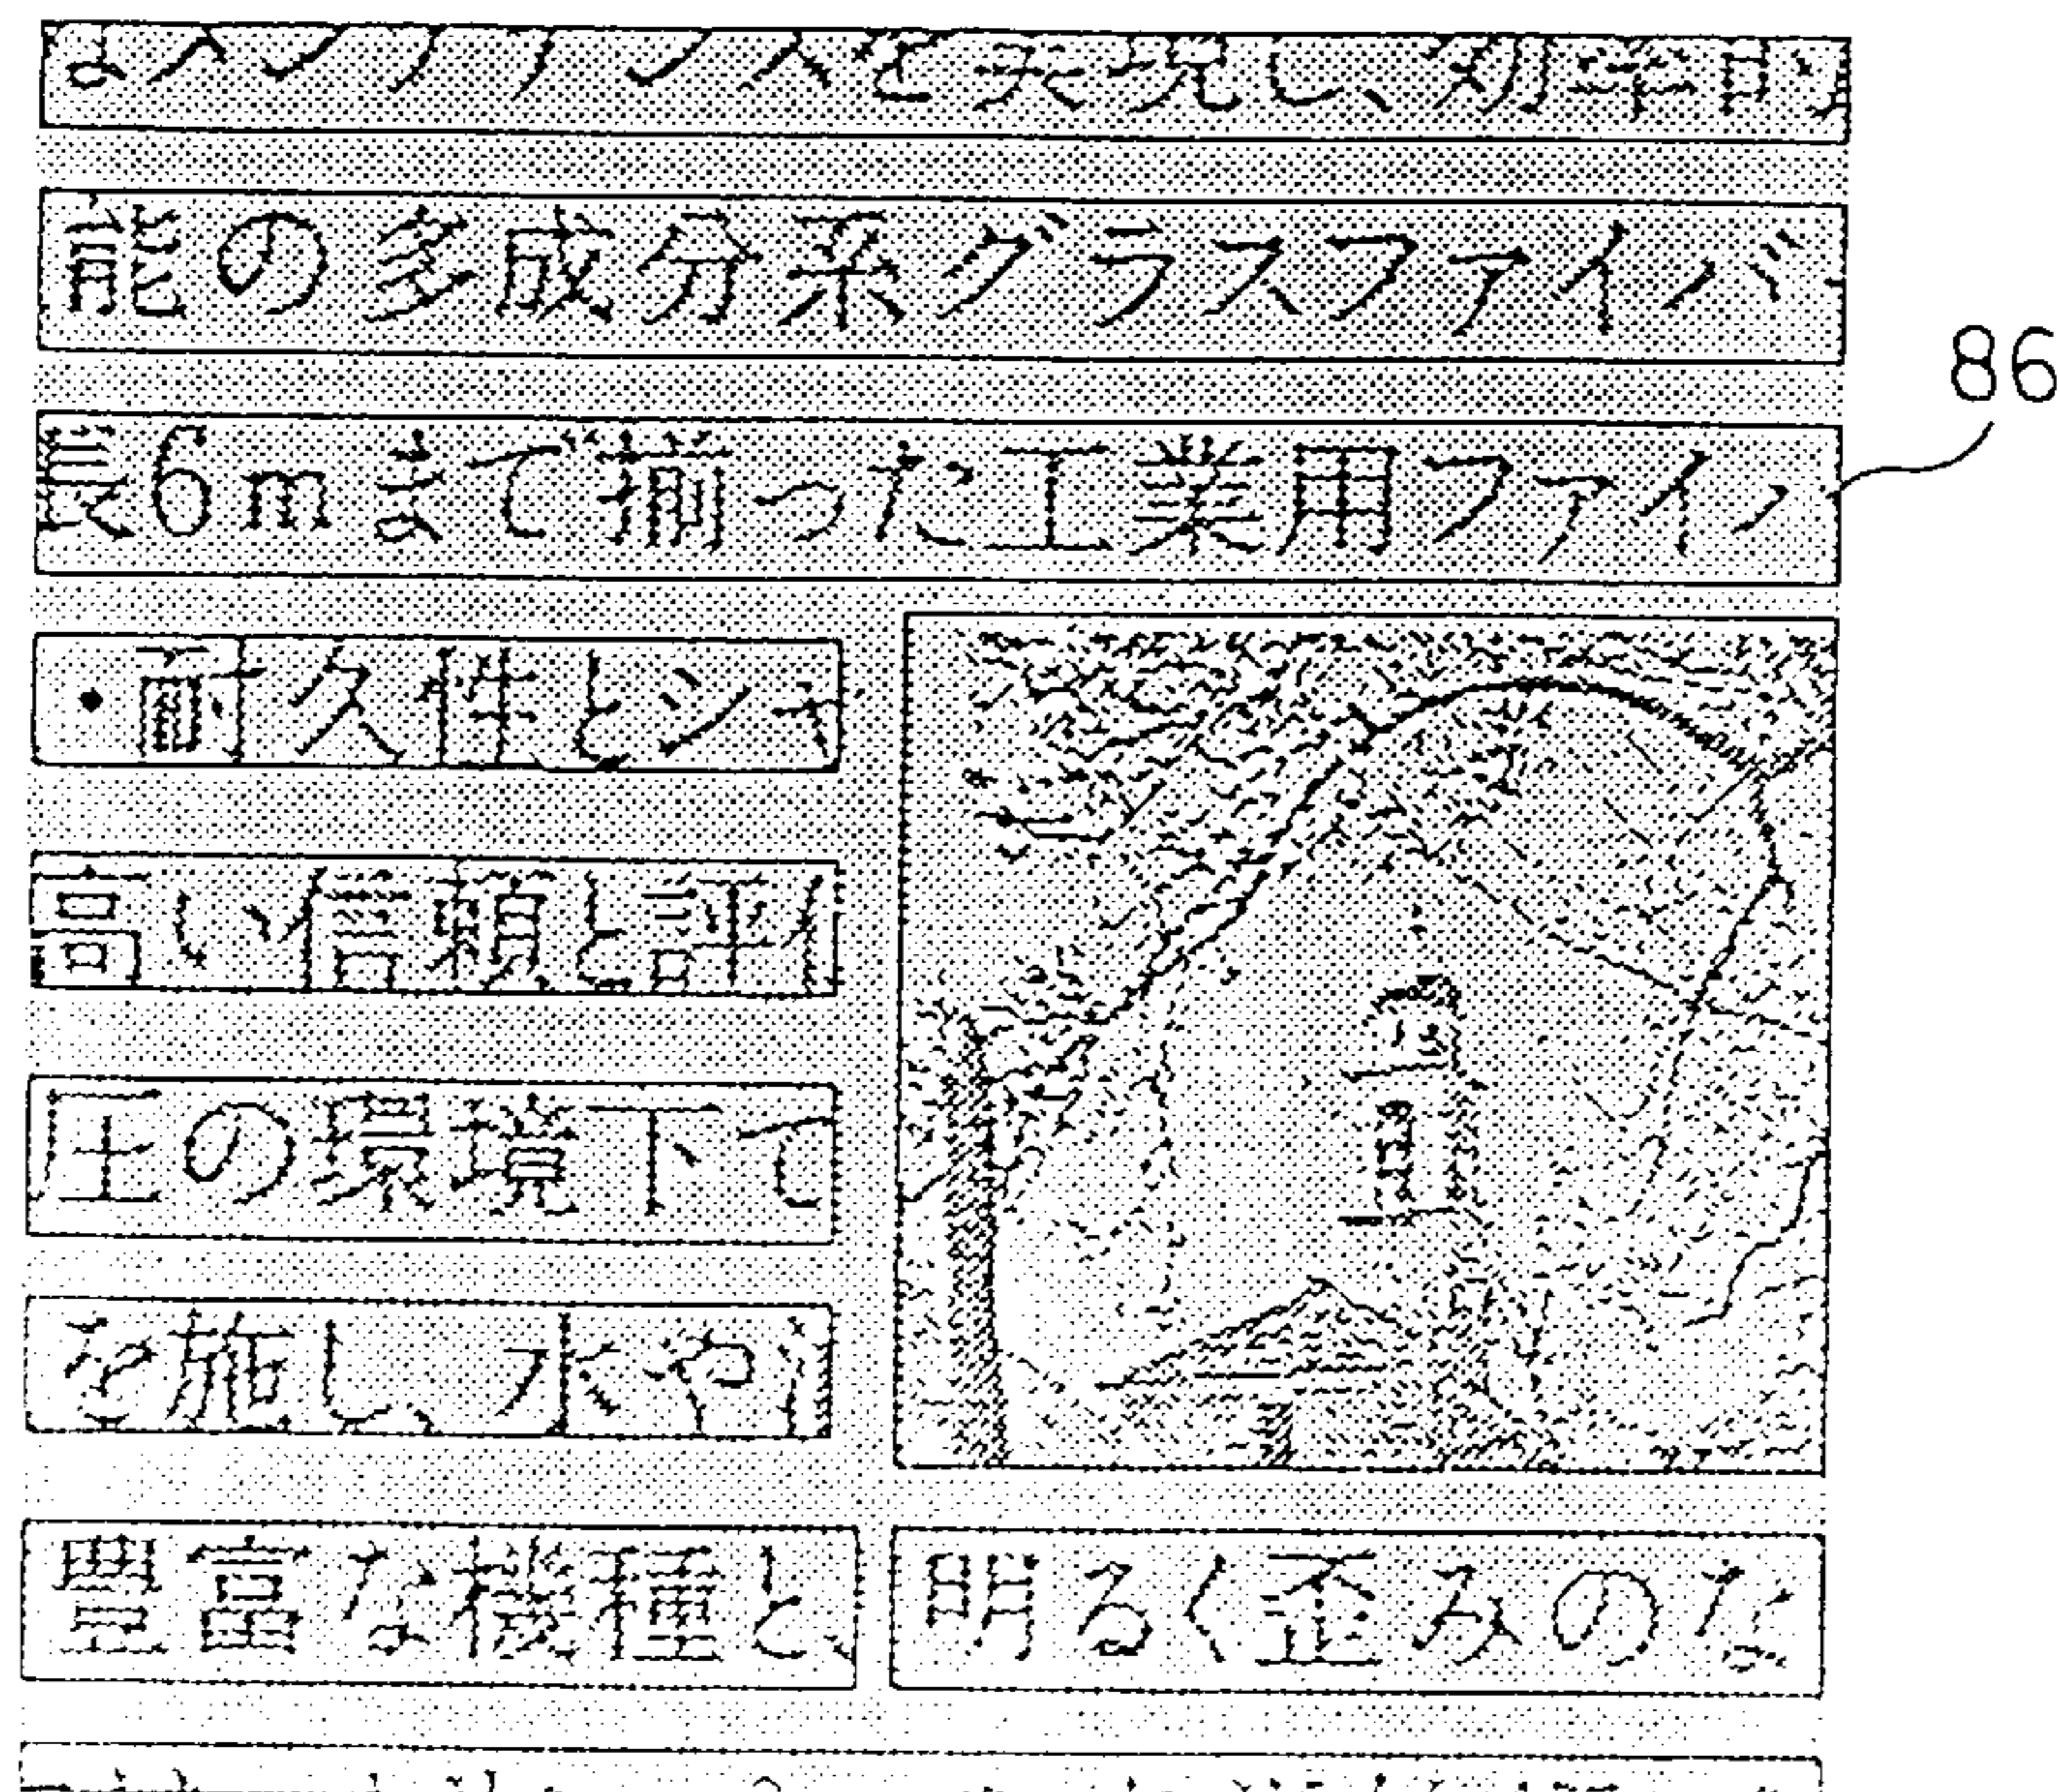 メンテナンスを実現し、効率的
能の多成分系グラスファイバ
長6mまで揃った工業用ファイ
86
・耐久性とシャ
高い信頼と評
圧の環境下で
を施し、水や
豊富な機種と、
明るく歪みのな